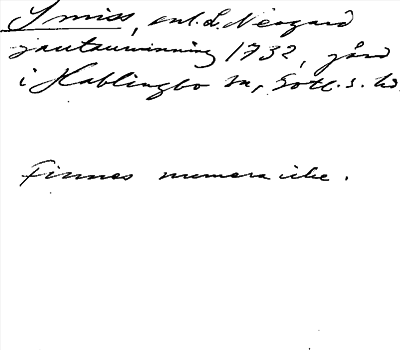 Smiss, enl. L. Neogard
jautauwinning 1732, gård
i Hablingbo sn, Gotl. s. hd.
Finnes numera icke.